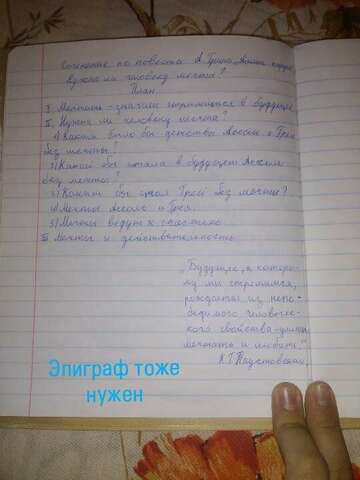 Сочинение по повести А. Грина „Алые паруса"
Нужна ли человеку мечта?
План.
I. Мечтать - значит стремиться в будущее.
II. Нужна ли человеку мечта?
1) Каким было бы детство Ассоль и Грея
без мечты?
2) Какой бы стала в будущем Ассоль
без мечты?
3) Каким бы стал Грей без мечты?
4) Мечты Ассоль и Грея.
5) Мечты ведут к счастью.
III Мечты и действительность.
„Будущее, к которо-
му мы стремимся,
рождается из непо-
бедимого человечес-
кого свойства - уметь
мечтать и любить."
К.Г. Паустовский.
Эпиграф тоже
нужен